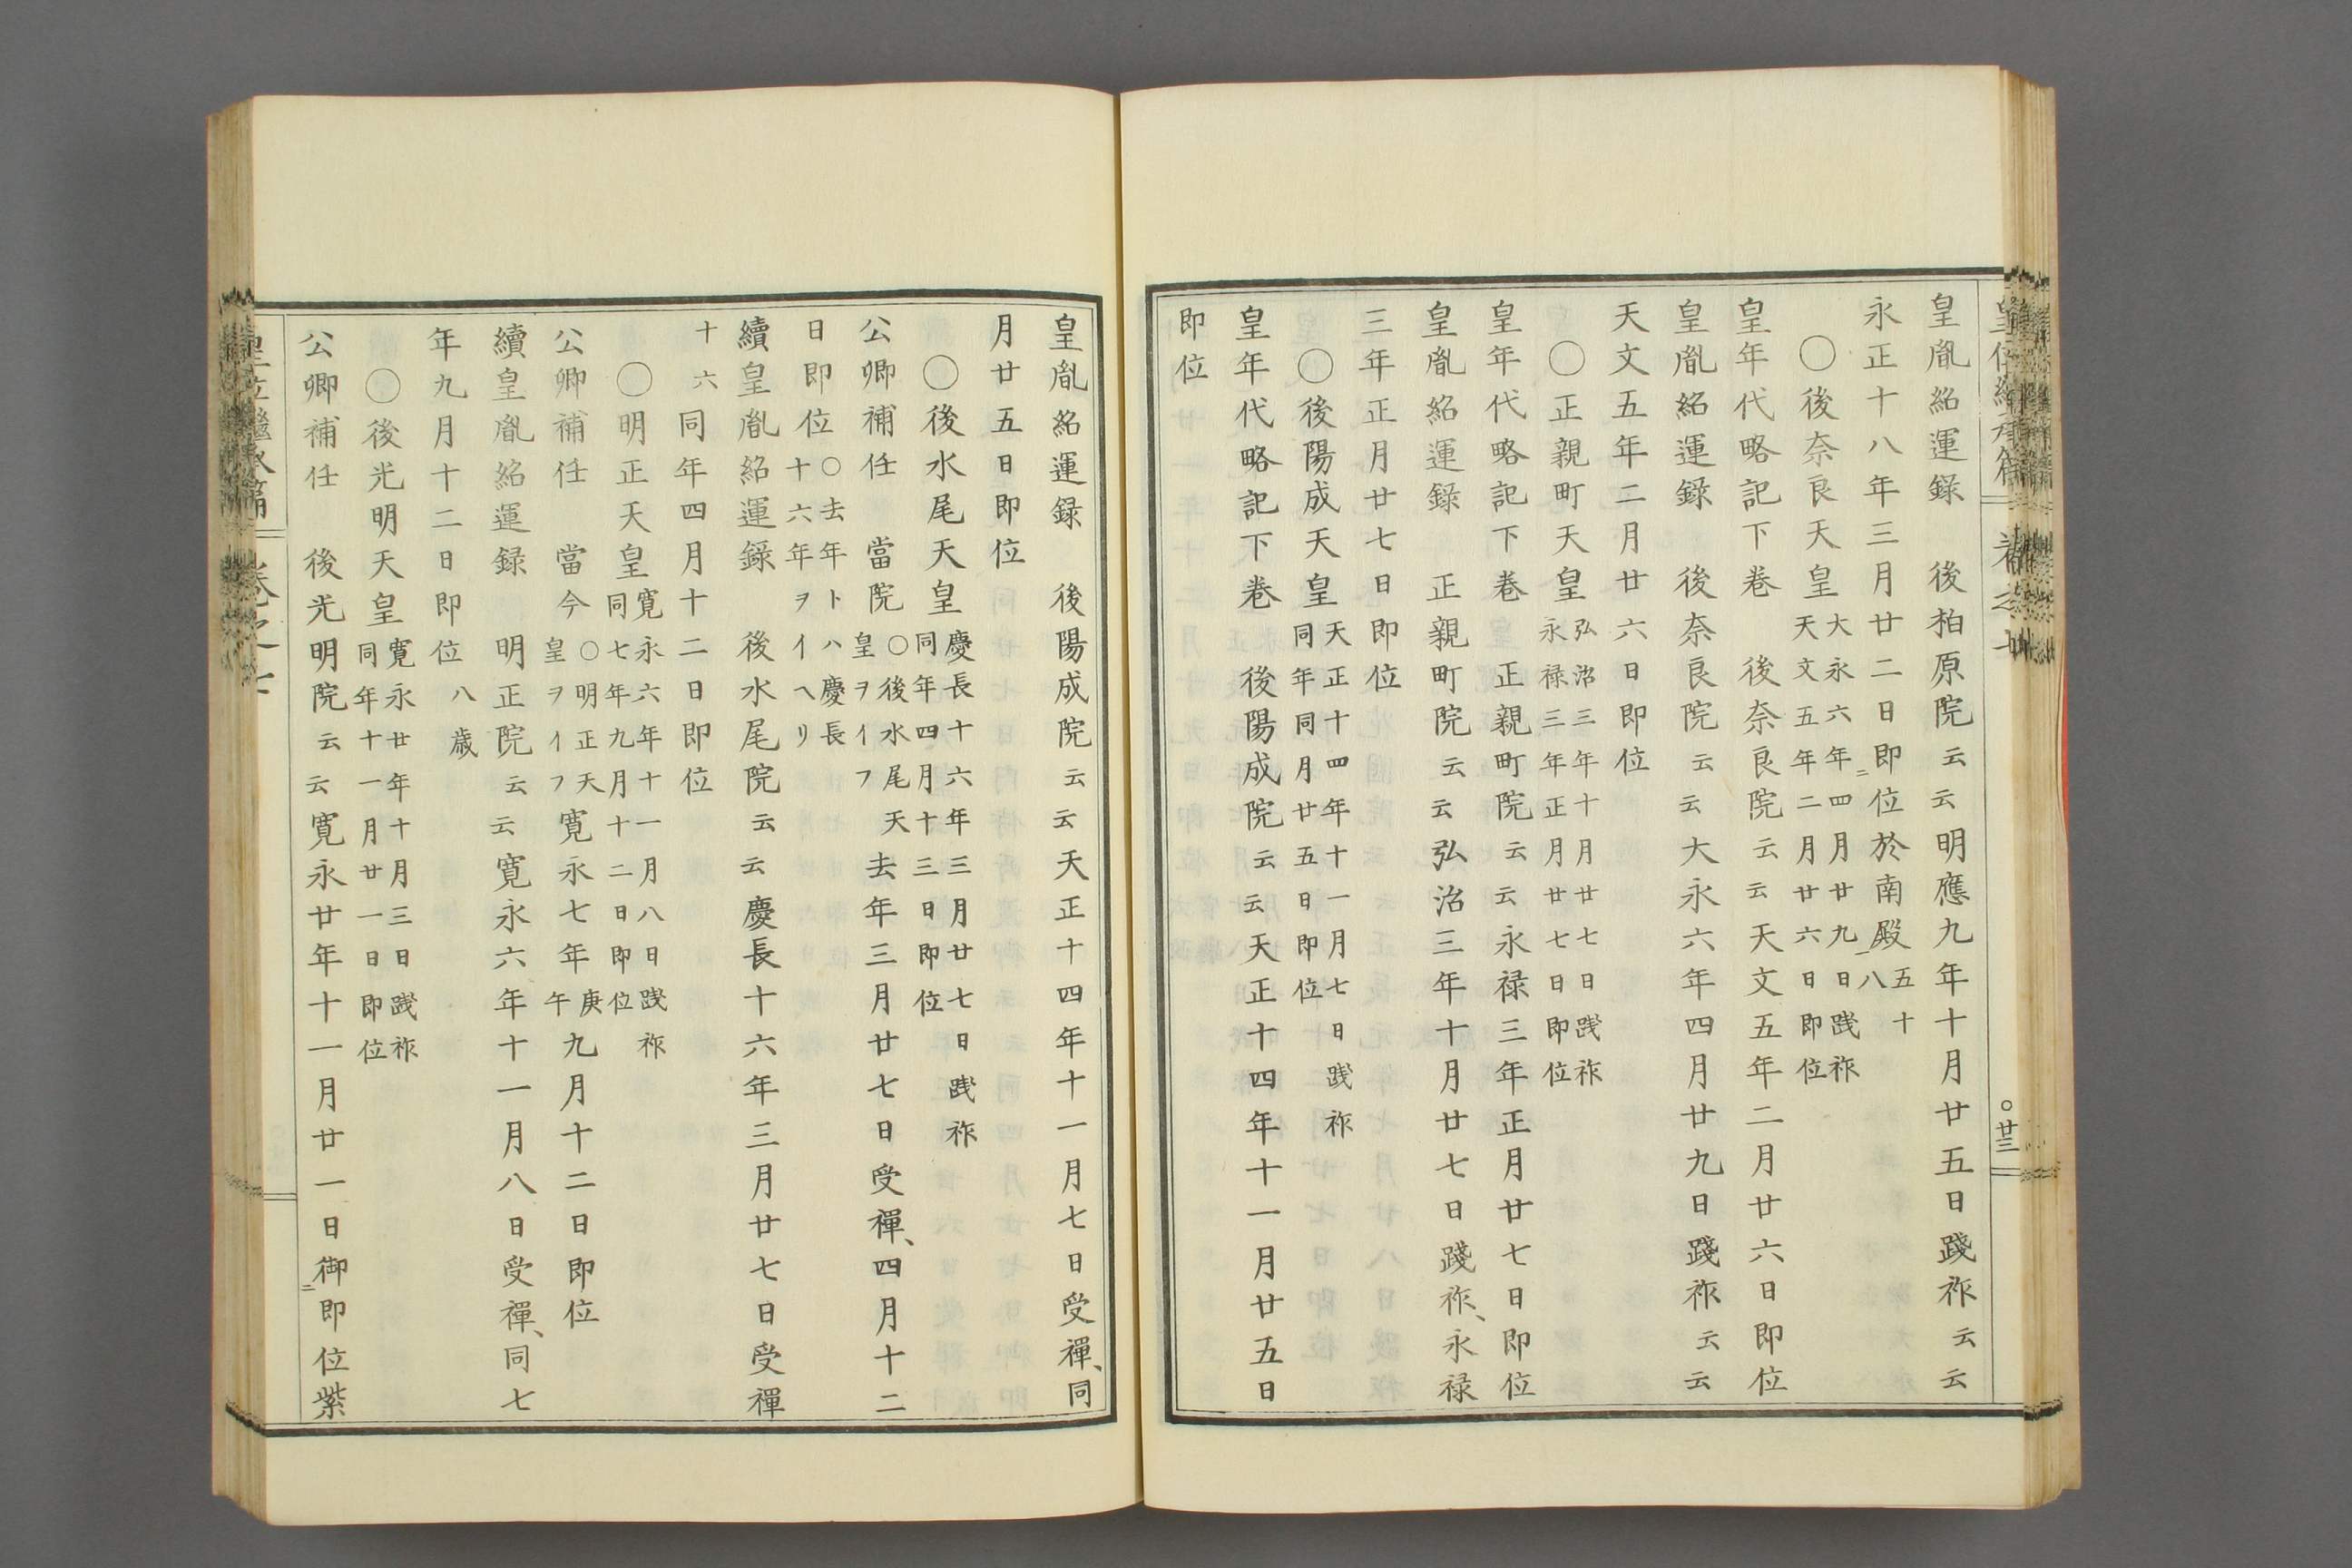 皇胤紹運録　後柏原院云云明應九年十月廿五日踐祚云云
永正十八年三月廿二日即位於南殿五十八
〇後奈良天皇大永六年四月廿九日踐祚天文五年二月廿六日即位
皇年代略記下巻　後奈良院云云天文五年二月廿六日即位
皇胤紹運録　後奈良院云云大永六年四月廿九日踐祚云云
天文五年二月廿六日即位
〇正親町天皇弘治三年十月廿七日踐祚永禄三年正月廿七日即位
皇年代略記下巻　正親町院云云永禄三年正月廿七日即位
皇胤紹運録　正親町院云云弘治三年十月廿七日踐祚、永禄
三年正月廿七日即位
〇後陽成天皇天正十四年十一月七日踐祚同年同月廿五日即位
皇年代略記下巻　後陽成院云云天正十四年十一月廿五日
即位
皇胤紹運録　後陽成院云云天正十四年十一月七日受禪、同
月廿五日即位
〇後水尾天皇慶長十六年三月廿七日踐祚同年四月十三日即位
公卿補任　當院〇後水尾天皇ヲイフ去年三月廿七日受禪、四月十二
日即位〇去年トハ慶長十六年ヲイヘリ
續皇胤紹運録　後水尾院云云慶長十六年三月廿七日受禪
十六同年四月十二日即位
〇明正天皇寛永六年十一月八日踐祚同七年九月十二日即位
公卿補任　當今〇明正天皇ヲイフ寛永七年庚午九月十二日即位
續皇胤紹運録　明正院云云寛永六年十一月八日受禪、同七
年九月十二日即位八歳
〇後光明天皇寛永廿年十月三日踐祚同年十一月廿一日即位
公卿補任　後光明院云云寛永廿年十一月廿一日御即位紫